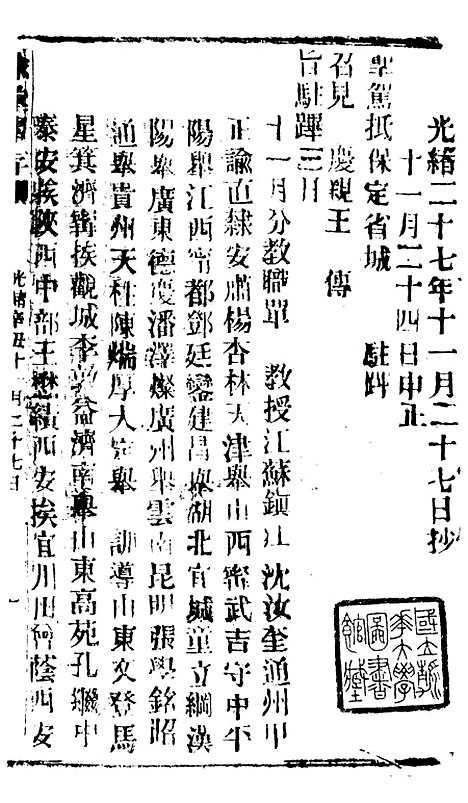 光緒二十七年十一月二十七日抄
十一月二十四日申正
聖駕抵保定省城 駐蹕
召見 慶親王 傳
旨駐蹕三日
十一月分教職單 教授江蘇鎮江 沈汝奎通州甲
正諭直隸安肅楊杏林天津舉山西寧武吉守中平
陽舉江西寧都鄧廷鑾建昌舉湖北宜城童立綱漢
陽舉廣東德慶潘澤燦廣州舉雲南昆明張學銘昭
通舉貴州天柱陳端厚大定舉 訓導山東文登馬
星箕濟 挨觀城李敦益濟南舉山東高苑孔繼中
泰安挨陝西中部王懋績西安挨宜川田 蔭西安
光緒辛丑十一月二十七日
一
國立清
華大學
圖書
館藏